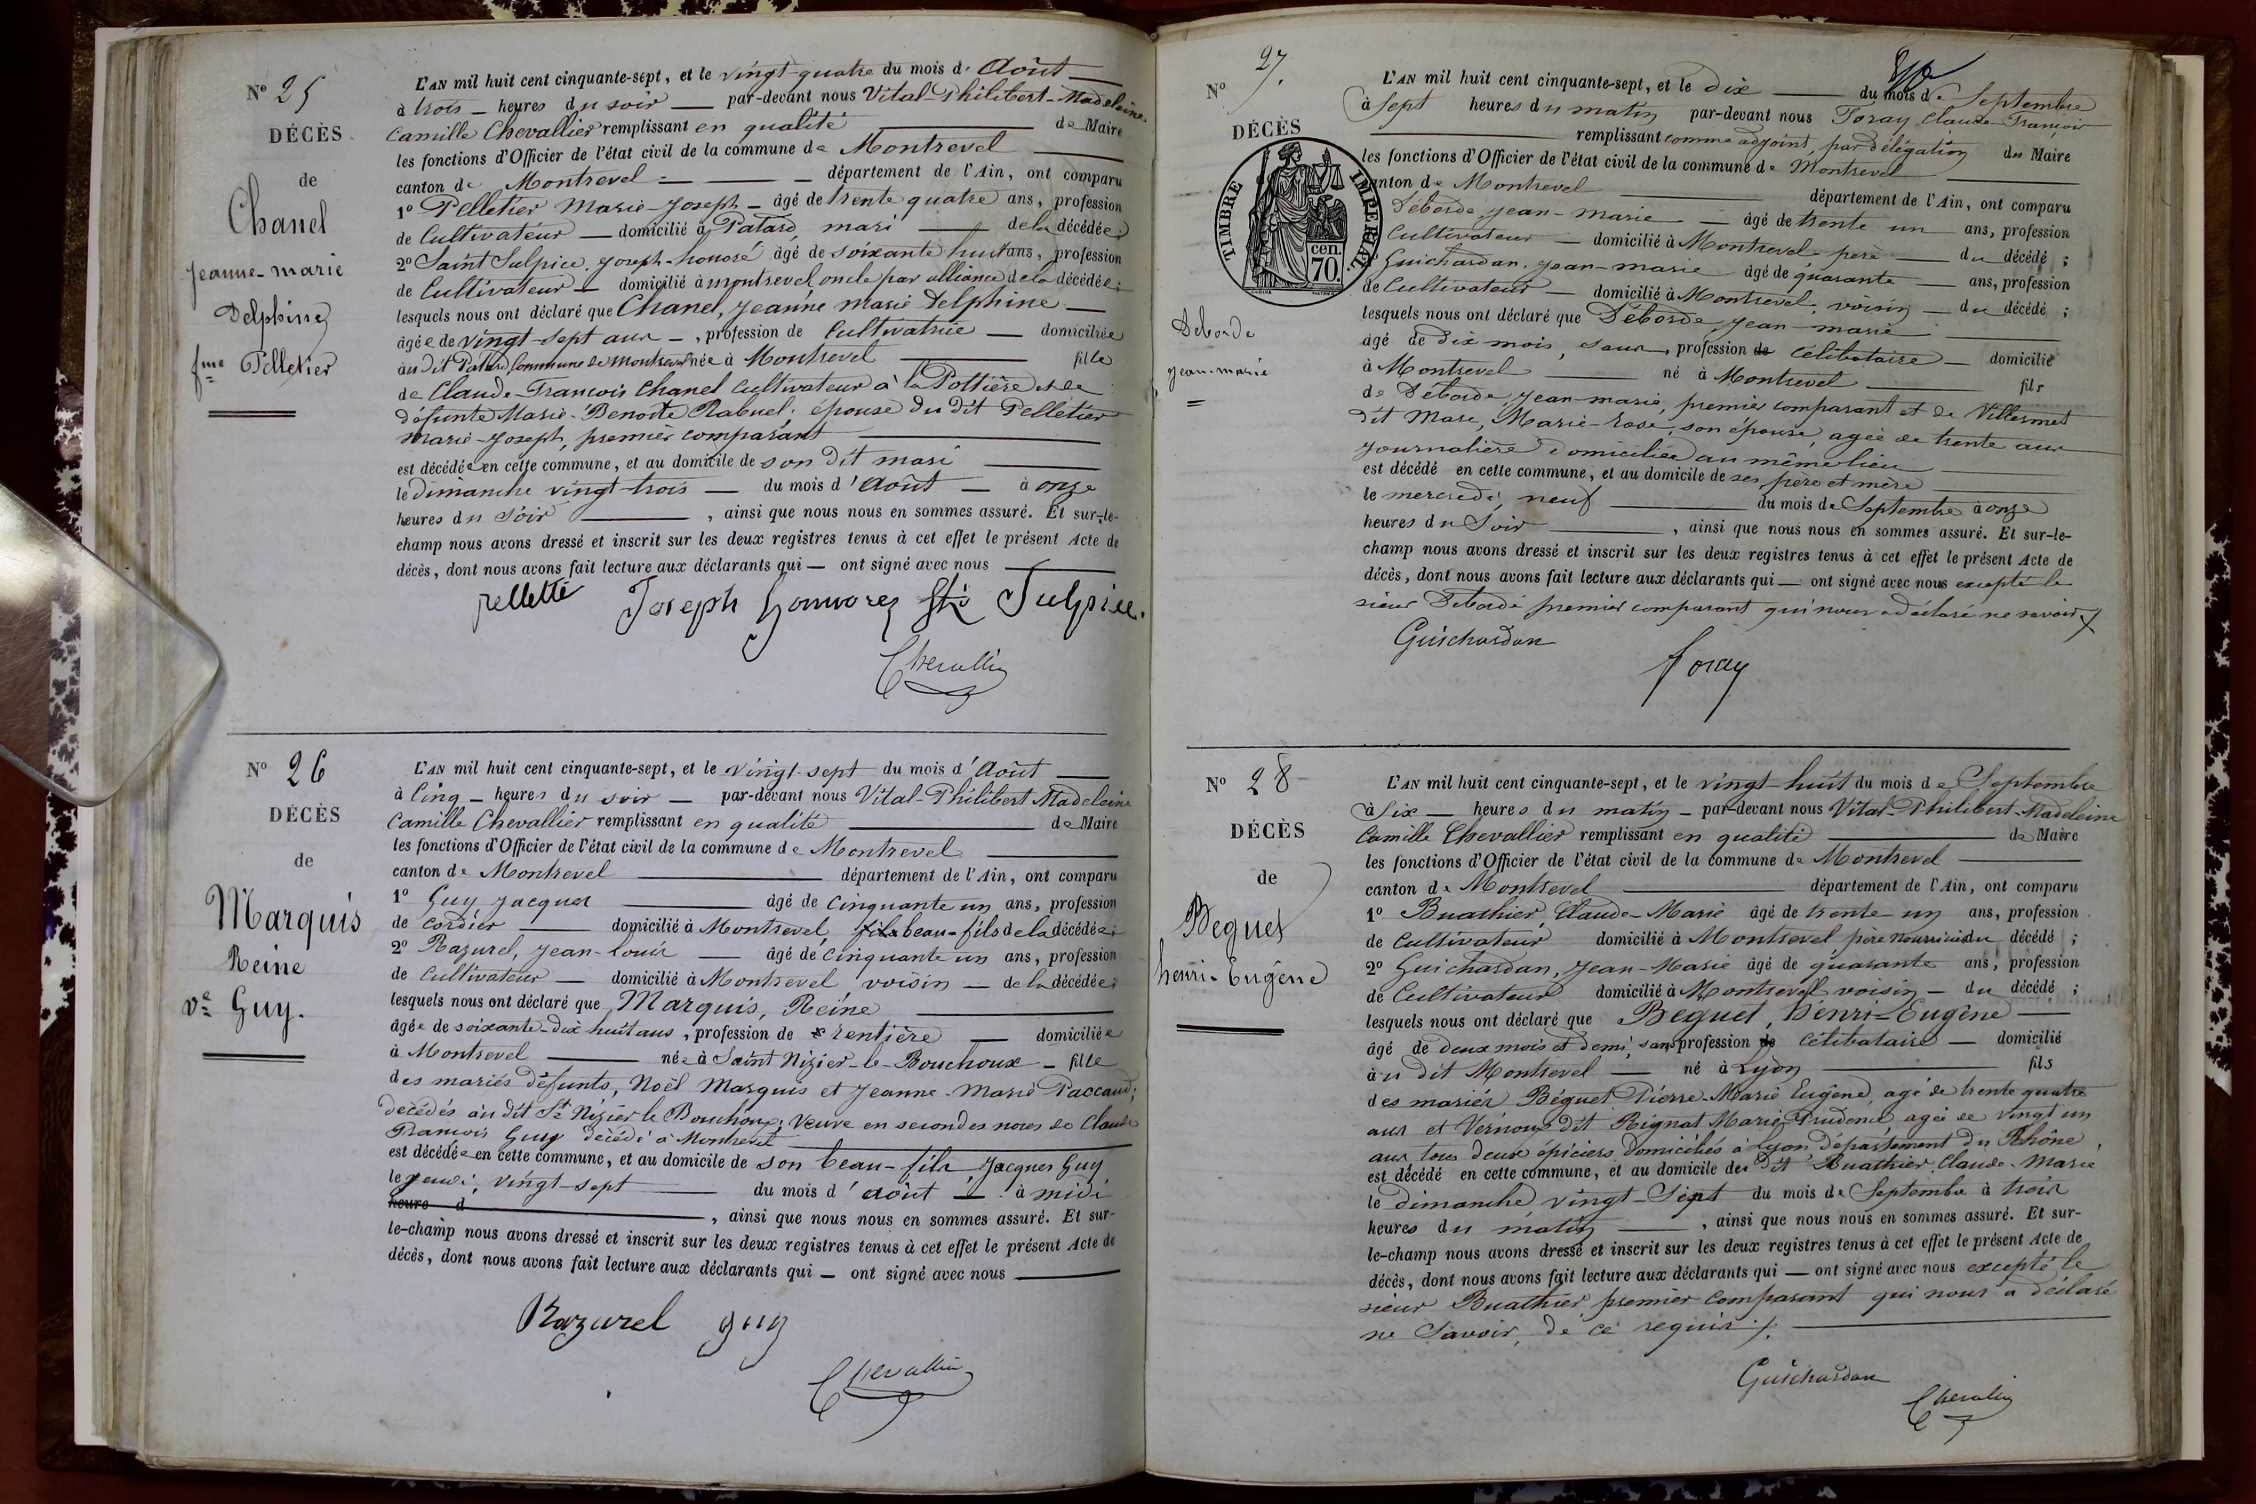 N° 25
DÉCÈS
de
Chanel
Jeanne-marie
Delphine
fme Pelletier
L'AN mil huit cent cinquante-sept, et le vingt-quatre du mois d' Août
à trois heures du soir par-devant nous Vital-Philibert-Madeleine
Camille Chevallier remplissant en qualité de Maire
les fonctions d'Officier de l'état civil de la commune de Montrevel
canton de Montrevel département de l'Ain, ont comparu
1° Pelletier Marie-Joseph âgé de trente quatre ans, profession
de Cultivateur domicilié à Patard, mari de la décédée;
2° Saint Sulpice, Joseph-honoré âgé de soixante huit ans, profession
de Cultivateur domicilié à montrevel oncle par alliance de la décédée;
lesquels nous ont déclaré que Chanel, Jeanne Marie Delphine
âgée de vingt-sept ans, profession de Cultivatrice domiciliée
au dit Patard Commune de Montrevel née à Montrevel fille
de Claude-François Chanel Cultivateur à la Pottière et de
défunte Marie-Benoite Rabuel; épouse du dit Pelletier
marie-Joseph, premier comparant
est décédée en cette commune, et au domicile de son dit mari
le dimanche vingt-trois du mois d' Août à onze
heures du soir, ainsi que nous nous en sommes assuré. Et sur-le-
champ nous avons dressé et inscrit sur les deux registres tenus à cet effet le présent Acte de
décès, dont nous avons fait lecture aux déclarants qui ont signé avec nous
pelletié Joseph honnorez St Sulpice.
Chevallier
N° 26
DÉCÈS
de
Marquis
Reine
ve Guy.
L'AN mil huit cent cinquante-sept, et le vingt-sept du mois d' Août
à Cinq heures du soir par-devant nous Vital-Philibert Madeleine
Camille Chevallier remplissant en qualité de Maire
les fonctions d'Officier de l'état civil de la commune de Montrevel
canton de Montrevel département de l'Ain, ont comparu
1° Guy Jacques âgé de cinquante un ans, profession
de Cordier domicilié à Montrevel, fils beau-fils de la décédée;
2° Razurel, Jean-Louis âgé de cinquante un ans, profession
de Cultivateur domicilié à Montrevel voisin de la décédée;
lesquels nous ont déclaré que Marquis, Reine
âgée de soixante-dix huit ans, profession de rentière domiciliée
à Montrevel née à Saint Nizier-le-Bouchoux fille
des mariés défunts, Noël Marquis et Jeanne-Marie Paccaud;
décédés au dit St Nizier le Bouchoux; Veuve en secondes noces de Claude
François Guy décédé à Montrevel
est décédée en cette commune, et au domicile de son beau-fils Jacques Guy
le jeudi, vingt-sept du mois d' août à midi
heure d', ainsi que nous nous en sommes assuré. Et sur-
le-champ nous avons dressé et inscrit sur les deux registres tenus à cet effet le présent Acte de
décès, dont nous avons fait lecture aux déclarants qui ont signé avec nous
Razurel guy
Chevallier
N° 27.
DÉCÈS
TIMBRE IMPÉRIAL.
cen.
70.
Deborde
Jean-marie
L'AN mil huit cent cinquante-sept, et le dix du mois de Septembre
à Sept heures du matin par-devant nous Foray Claude-François
remplissant comme adjoint, par délégation du Maire
les fonctions d'Officier de l'état civil de la commune de Montrevel
canton de Montrevel département de l'Ain, ont comparu
Déborde, Jean-marie âgé de trente un ans, profession
Cultivateur domicilié à Montrevel père du décédé;
Guichardan, Jean-marie âgé de quarante ans, profession
de Cultivateur domicilié à Montrevel, voisin du décédé;
lesquels nous ont déclaré que Déborde, Jean-marie
âgé de dix mois, sans, profession de Célibataire domicilié
à Montrevel né à Montrevel fils
de Déborde, Jean-marie, premier comparant et de Villermet
dit Mare, Marie-Rose, son épouse, agée de trente ans
Journalière domiciliée au même lieu
est décédé en cette commune, et au domicile de ses père et mère
le mercredi, neuf du mois de Septembre à onze
heures du Soir, ainsi que nous nous en sommes assuré. Et sur-le-
champ nous avons dressé et inscrit sur les deux registres tenus à cet effet le présent Acte de
décès, dont nous avons fait lecture aux déclarants qui ont signé avec nous excepté le
sieur Deborde premier comparant qui nous a déclaré ne savoir
Guichardan
foray
N° 28
DÉCÈS
de
Beguet
henri-Eugène
L'AN mil huit cent cinquante-sept, et le vingt-huit du mois de Septembre
à Six heures du matin par-devant nous Vital-Philibert-Madeleine
Camille Chevallier remplissant en qualité de Maire
les fonctions d'Officier de l'état civil de la commune de Montrevel
canton de Montrevel département de l'Ain, ont comparu
1° Buathier Claude-Marie âgé de trente-un ans, profession
de Cultivateur domicilié à Montrevel père nourricier du décédé;
2° Guichardan, Jean-Marie âgé de quarante ans, profession
de Cultivateur domicilié à Montrevel voisin du décédé;
lesquels nous ont déclaré que Beguet, Henri-Eugène
âgé de deux mois et demi, sans profession de Célibataire domicilié
au dit Montrevel né à Lyon fils
des mariés Béguet Pierre-Marie Eugène, agé de trente quatre
ans et Vernoux dit Rignat Marie Prudence agée de vingt un
ans, tous deux épiciers, domiciliés à Lyon département du Rhône,
est décédé en cette commune, et au domicile du dit Buathier Claude-Marie
le dimanche, vingt-sept du mois de Septembre à trois
heures du matin, ainsi que nous nous en sommes assuré. Et sur-
le-champ nous avons dressé et inscrit sur les deux registres tenus à cet effet le présent Acte de
décès, dont nous avons fait lecture aux déclarants qui ont signé avec nous excepté le
sieur Buathier, premier comparant qui nous a déclaré
ne Savoir, de ce requis
Guichardan
Chevallier